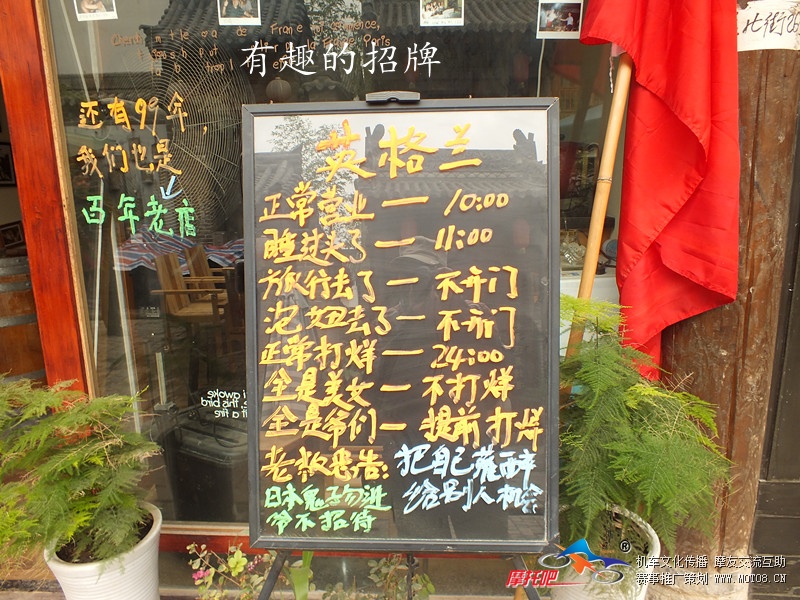 有趣的招牌
还有99年，
我们也是
百年老店
英格兰
正常营业一10:00
睡过头了一11:00
旅行去了一不开门
泡妞去了一不开门
正常打烊一24:00
全是美女一不打烊
全是爷们一提前打烊
老板忠告：把自己灌醉
给别人机会
日本鬼子勿进
爷不招待
此街
摩托吧
®
机车文化传播 摩友交流互助
赛事推广策划 www.MOTO8.CN